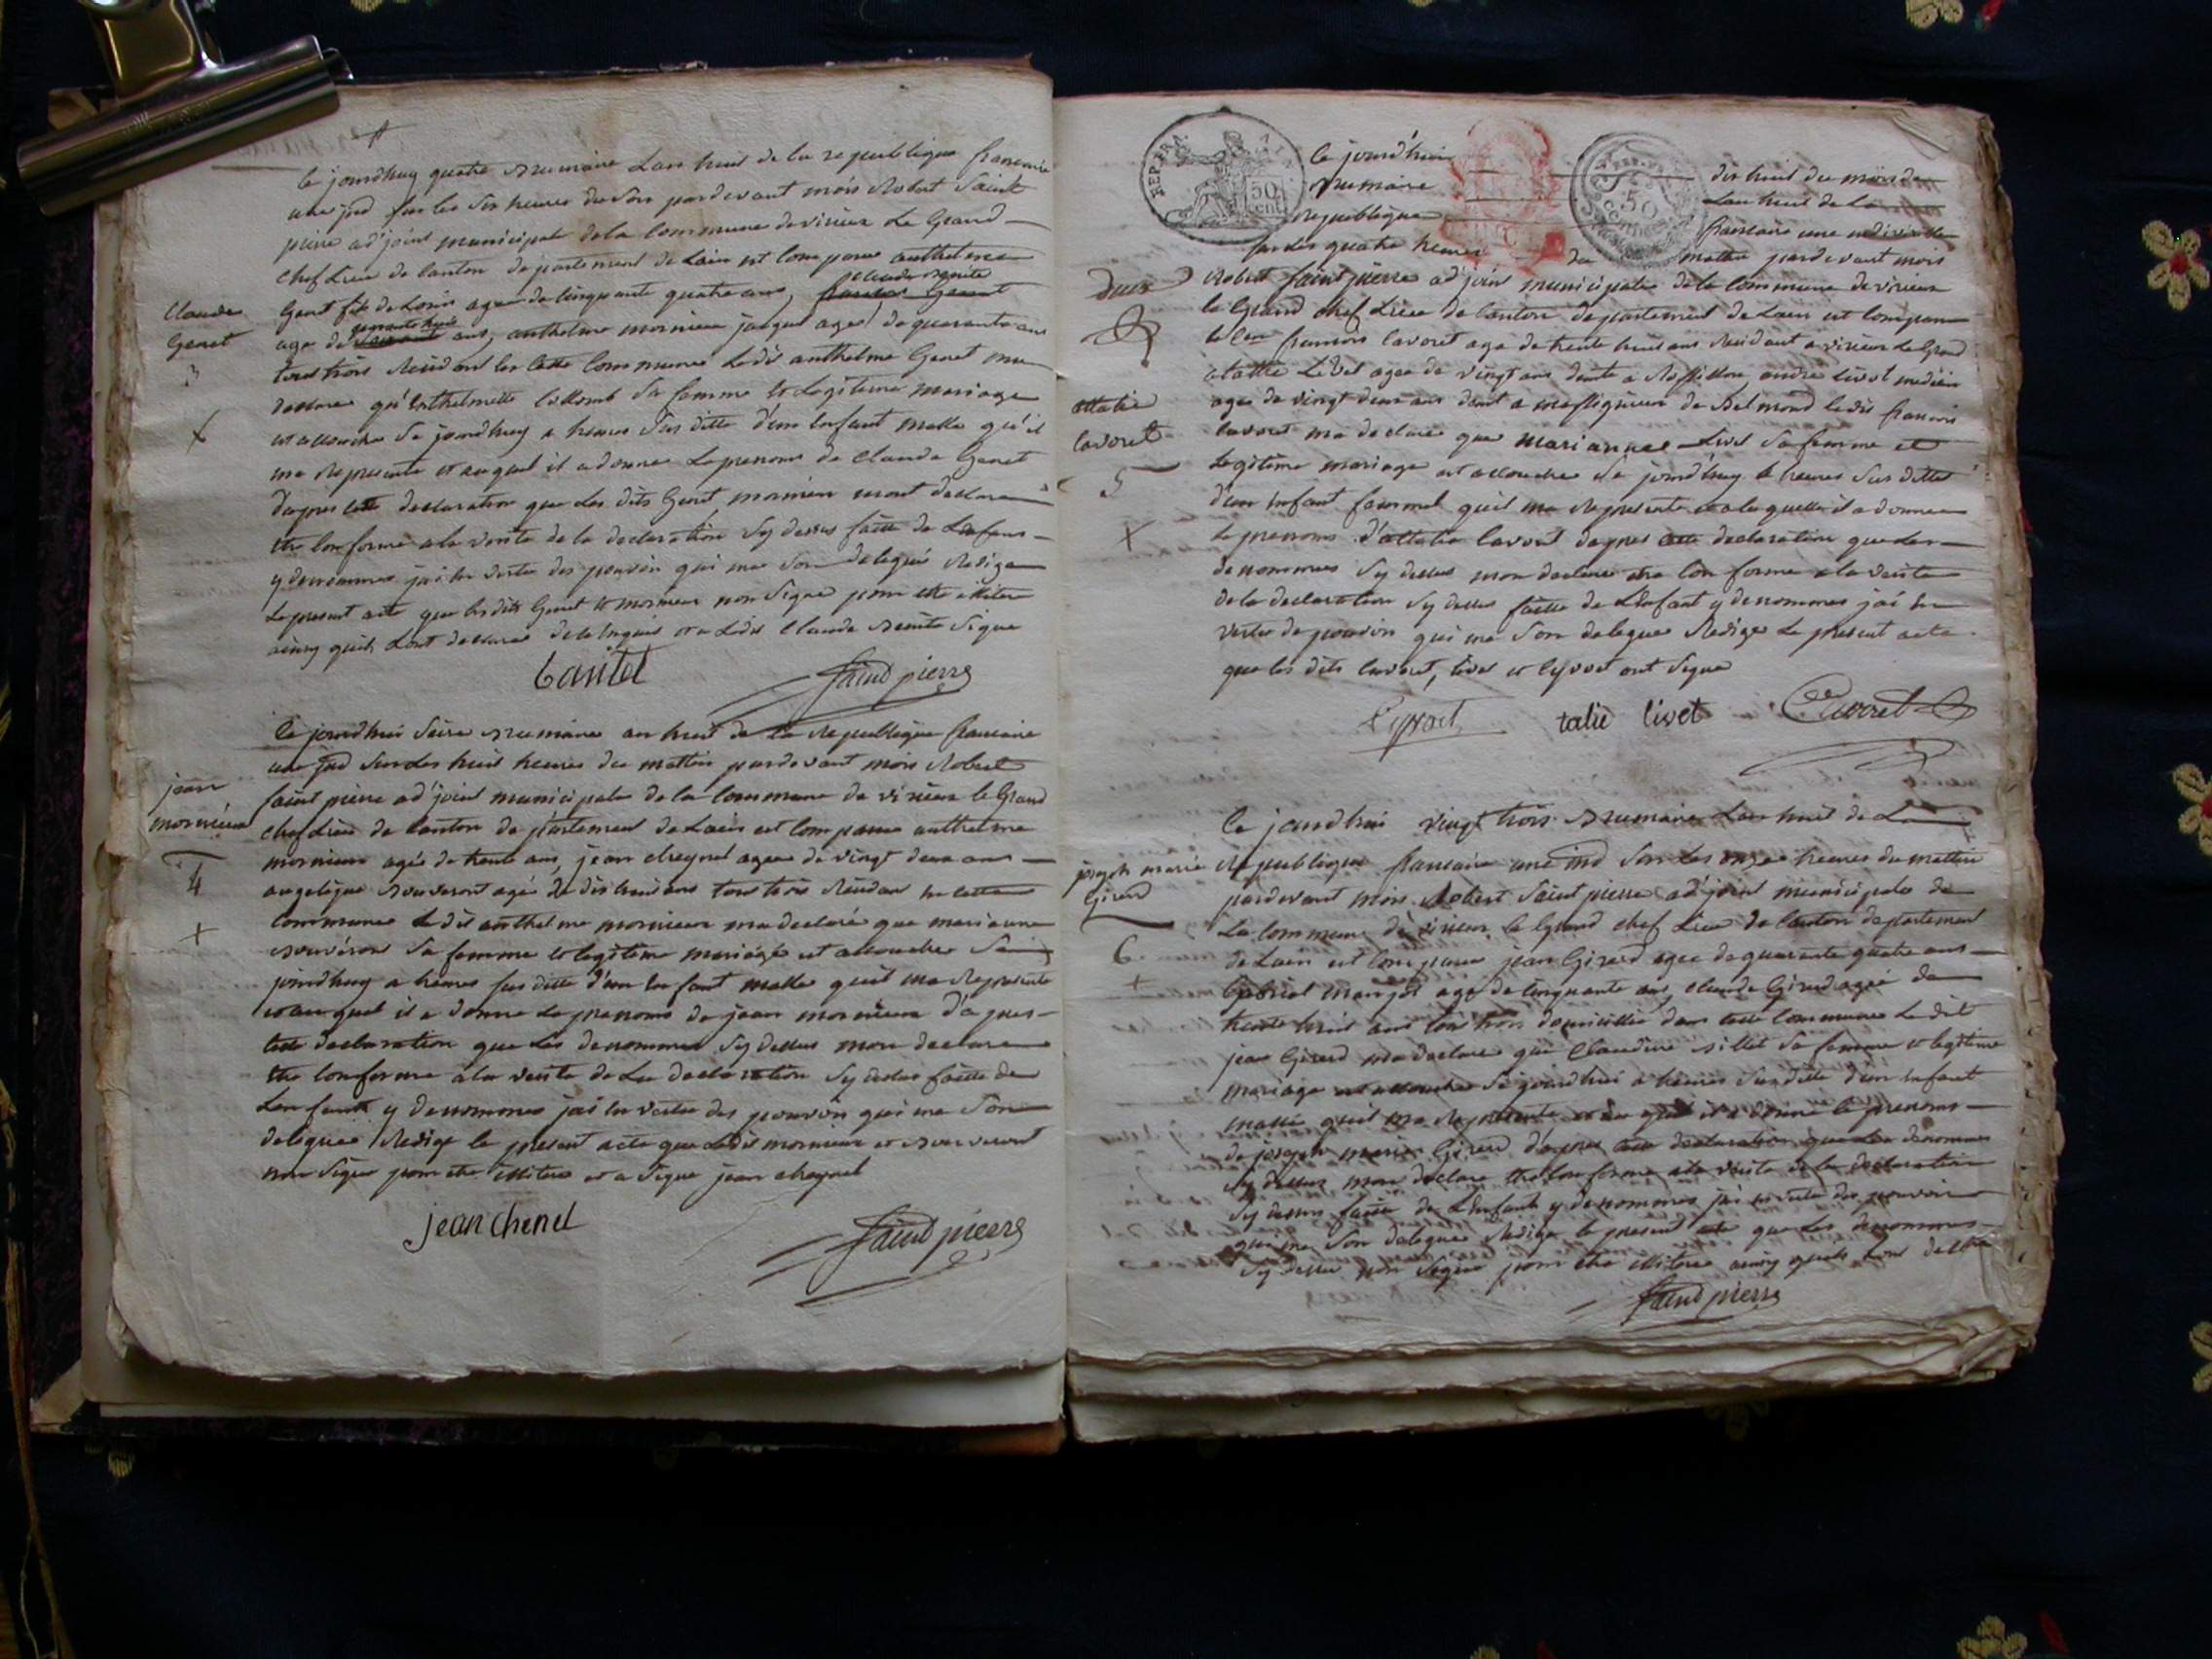 ce jourdhuy quatre brumaire Lan huit de la republique francaise
une jnd sur les six heures du soir pardevant mois Robert Saint
pierre ad'joint municipale de la Commune de virieu Le Grand
chef Lieu de Canton departement de Lain est Comparue anthelme
Genet fils de Louis agee de Cinquante quatre ans,
Claude benite
Claude
Genet
3
age de ans, anthelme mornieu jacques agee de quarante ans
quarante huit
tous trois Residant en Cette Commune Le dit anthelme Genet ma
declare qu'Enthelmette Collomb Sa femme et Legitime mariage
et accouche Se jourdhuy a heures Sus ditte d'un Enfant malle qu'il
ma Represente et auquel il a donnee Le prenoms de Claude Genet
Dapres cette declaration que Les dits Genet, mornieu mont declare
etre Conforme a la verite de la declaration Sy dessus faitte de Lenfans
y denommes jai en vertu des pouvoir qui me Son delegués Redige
Le present acte que les dits Genet et mornieu non Signe pour etre illitere
ainsy quils Lont declaree de le Enquis et a Ledit Claude benite Signe
Saind pierre
Ce jourdhui Seize brumaire an huit de la Republique francaise
une jnd Sur Les huit heures du mattin pardevant mois Robert
jean
mornieu
4
Saint pierre ad'joint municipale de la Commune de virieu le Grand
chef Lieu de Canton departement de Lain est Comparue anthelme
mornieu agée de trente ans, jean cheynel agee de vingt deux ans
angelique bouveront agé de dix huit ans tous trois Residan en cette
Commune Le dit anthelme mornieu ma declaré que marianne
bouveron Sa femme et legitime mariage est accouchee Se
jourdhuy a heures sus ditte d'un Enfant malle quil ma Represente
et auquel il a donne Le prenoms de jean mornieu d'apres
cette declaration que Les denommes Sy dessus mon declare
etre Conforme a la verite de La declaration Sy dessus faitte de
Lenfant y denommes jai en vertu des pouvoir qui me Son
deleguee Redige le present acte que Ledit mornieu et bouveront
non Signe pour etre illitere et a Signe jean cheynel
jean chenel
Saind pierre
REP. FRA.
50
cent
50
Ce jourd'hui dix huit du mois de
brumaire Lan huit de la
republique francaise une indivisible
sur Les quatre heures du mattin pardevant mois
deux
Robert Saint pierre ad'joint municipale de la Commune de virieu
le Grand chef Lieu de Canton departement de Lain est Comparu
le Cen francois Cavoret age de trente huit ans Residant a virieu Le Grand
attalie Livet agee de vingt ans
attalie
Cavoret
5
age de vingt deux ans de Belmond ledit francois
Cavoret ma declaree que marianne Livet Sa femme et
Legitime mariage est accouchee Se jourd'huy a heures Sus ditte
d'un Enfant feammel quil ma Represente et a la quelle il a donnee
Le prenoms d'attalie Cavoret dapres cette declaration que Les
denommes Sy dessus mon declare etre Conforme a la verite
de la declaration Sy dessus faitte de Lenfant y denommes jai en
vertu de pouvoir qui me Son deleguee Redige Le present acte
que les dits Cavoret, livet et Eyvoet ont Signe
talie livet Cavoret
Ce jourdhui vingt trois brumaire Lan huit de La
joseph marie
Girerd
6
Republique francaise une jnd Sur Les onze heures du mattin
pardevant mois Robert Saint pierre ad'joint municipale de
La Commune de virieu le Grand chef Lieu de Canton departement
de Lain est Comparue jean Girerd agee de quarante quatre ans
Gabriel age de Cinquante ans, Claude Girerd agee de
trente huit ans tous trois domicillie dans cette Commune Le dit
jean Girerd ma declaree que Claudine billet Sa femme et legitime
mariage est accouchee Se jourdhui a heures Sus ditte d'un Enfant
malle quil ma Represente et au quel il a donné le prenoms
de joseph marie Girerd d'apres cette declaration que Les denommes
Sy dessus mon declare etre Conforme a la verite de la declaration
Sy dessus faitte de Lenfant y denommes jai en vertu des pouvoir
qui me Son deleguee Redige le present acte que Les denommes
Sy dessus non Signe pour etre illitere ainsy quils Lont declare
Saind pierre